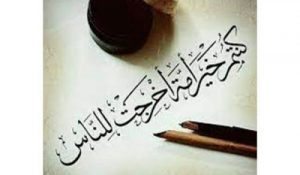 كنتم خير أمة أخرجت للناس